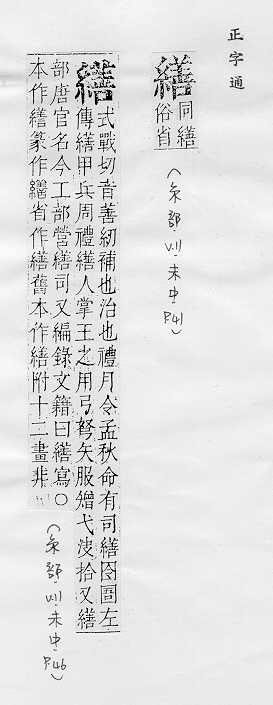 正字通
繕 同繕俗省
(糸部·VII·未中·P.41)
繕 式戰切音善紉補也治也禮月令孟秋命有司繕囹圄左
傳繕甲兵周禮繕人掌王之用弓弩矢服矰弋決拾又繕
部唐官名今工部營繕司又編錄文籍曰繕寫○
本作繕篆作繕省作繕舊本作繕附十二畫非
(糸部·VII·未中·P.46)